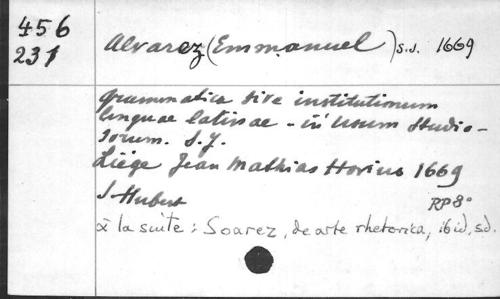 456
231
Alvarez (Emmanuel) s.j. 1669
Grammatica sive institutionum
linguae latinae - in usum studio-
sorum. S.J.
Liége Jean Mathias Hovius 1669
S. Hubert
RP 8°
à la suite : Soarez, de arte rhetorica, ibid, s.d.